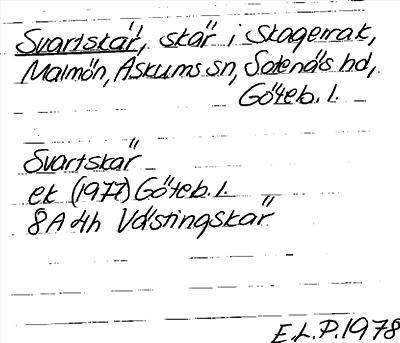 Svartskär, skär i Skagerrak,
Malmön, Askums sn, Sotenäs hd,
Göteb. l.
Svartskär
ek (1977) Göteb. l.
8A 4h Västingskär
E.L.P. 1978